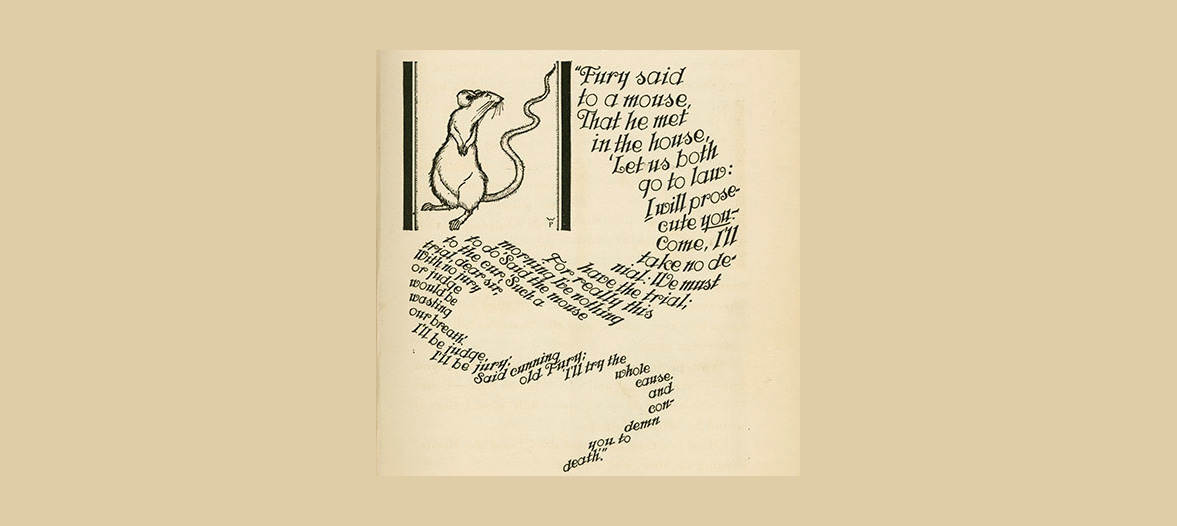 "Fury said
to a mouse,
That he met
in the house,
'Let us both
go to law:
I will prose-
cute you-
Come, I'll
take no de-
nial: We must
have the trial;
For really this
morning I've nothing
to do.' Said the mouse
to the cur, 'Such a
trial, dear sir,
With no jury
or judge
would be
wasting
our breath.'
I'll be judge,
I'll be jury;'
Said cunning
old Fury;
'I'll try the
whole
cause,
and
con-
demn
you to
death.'"